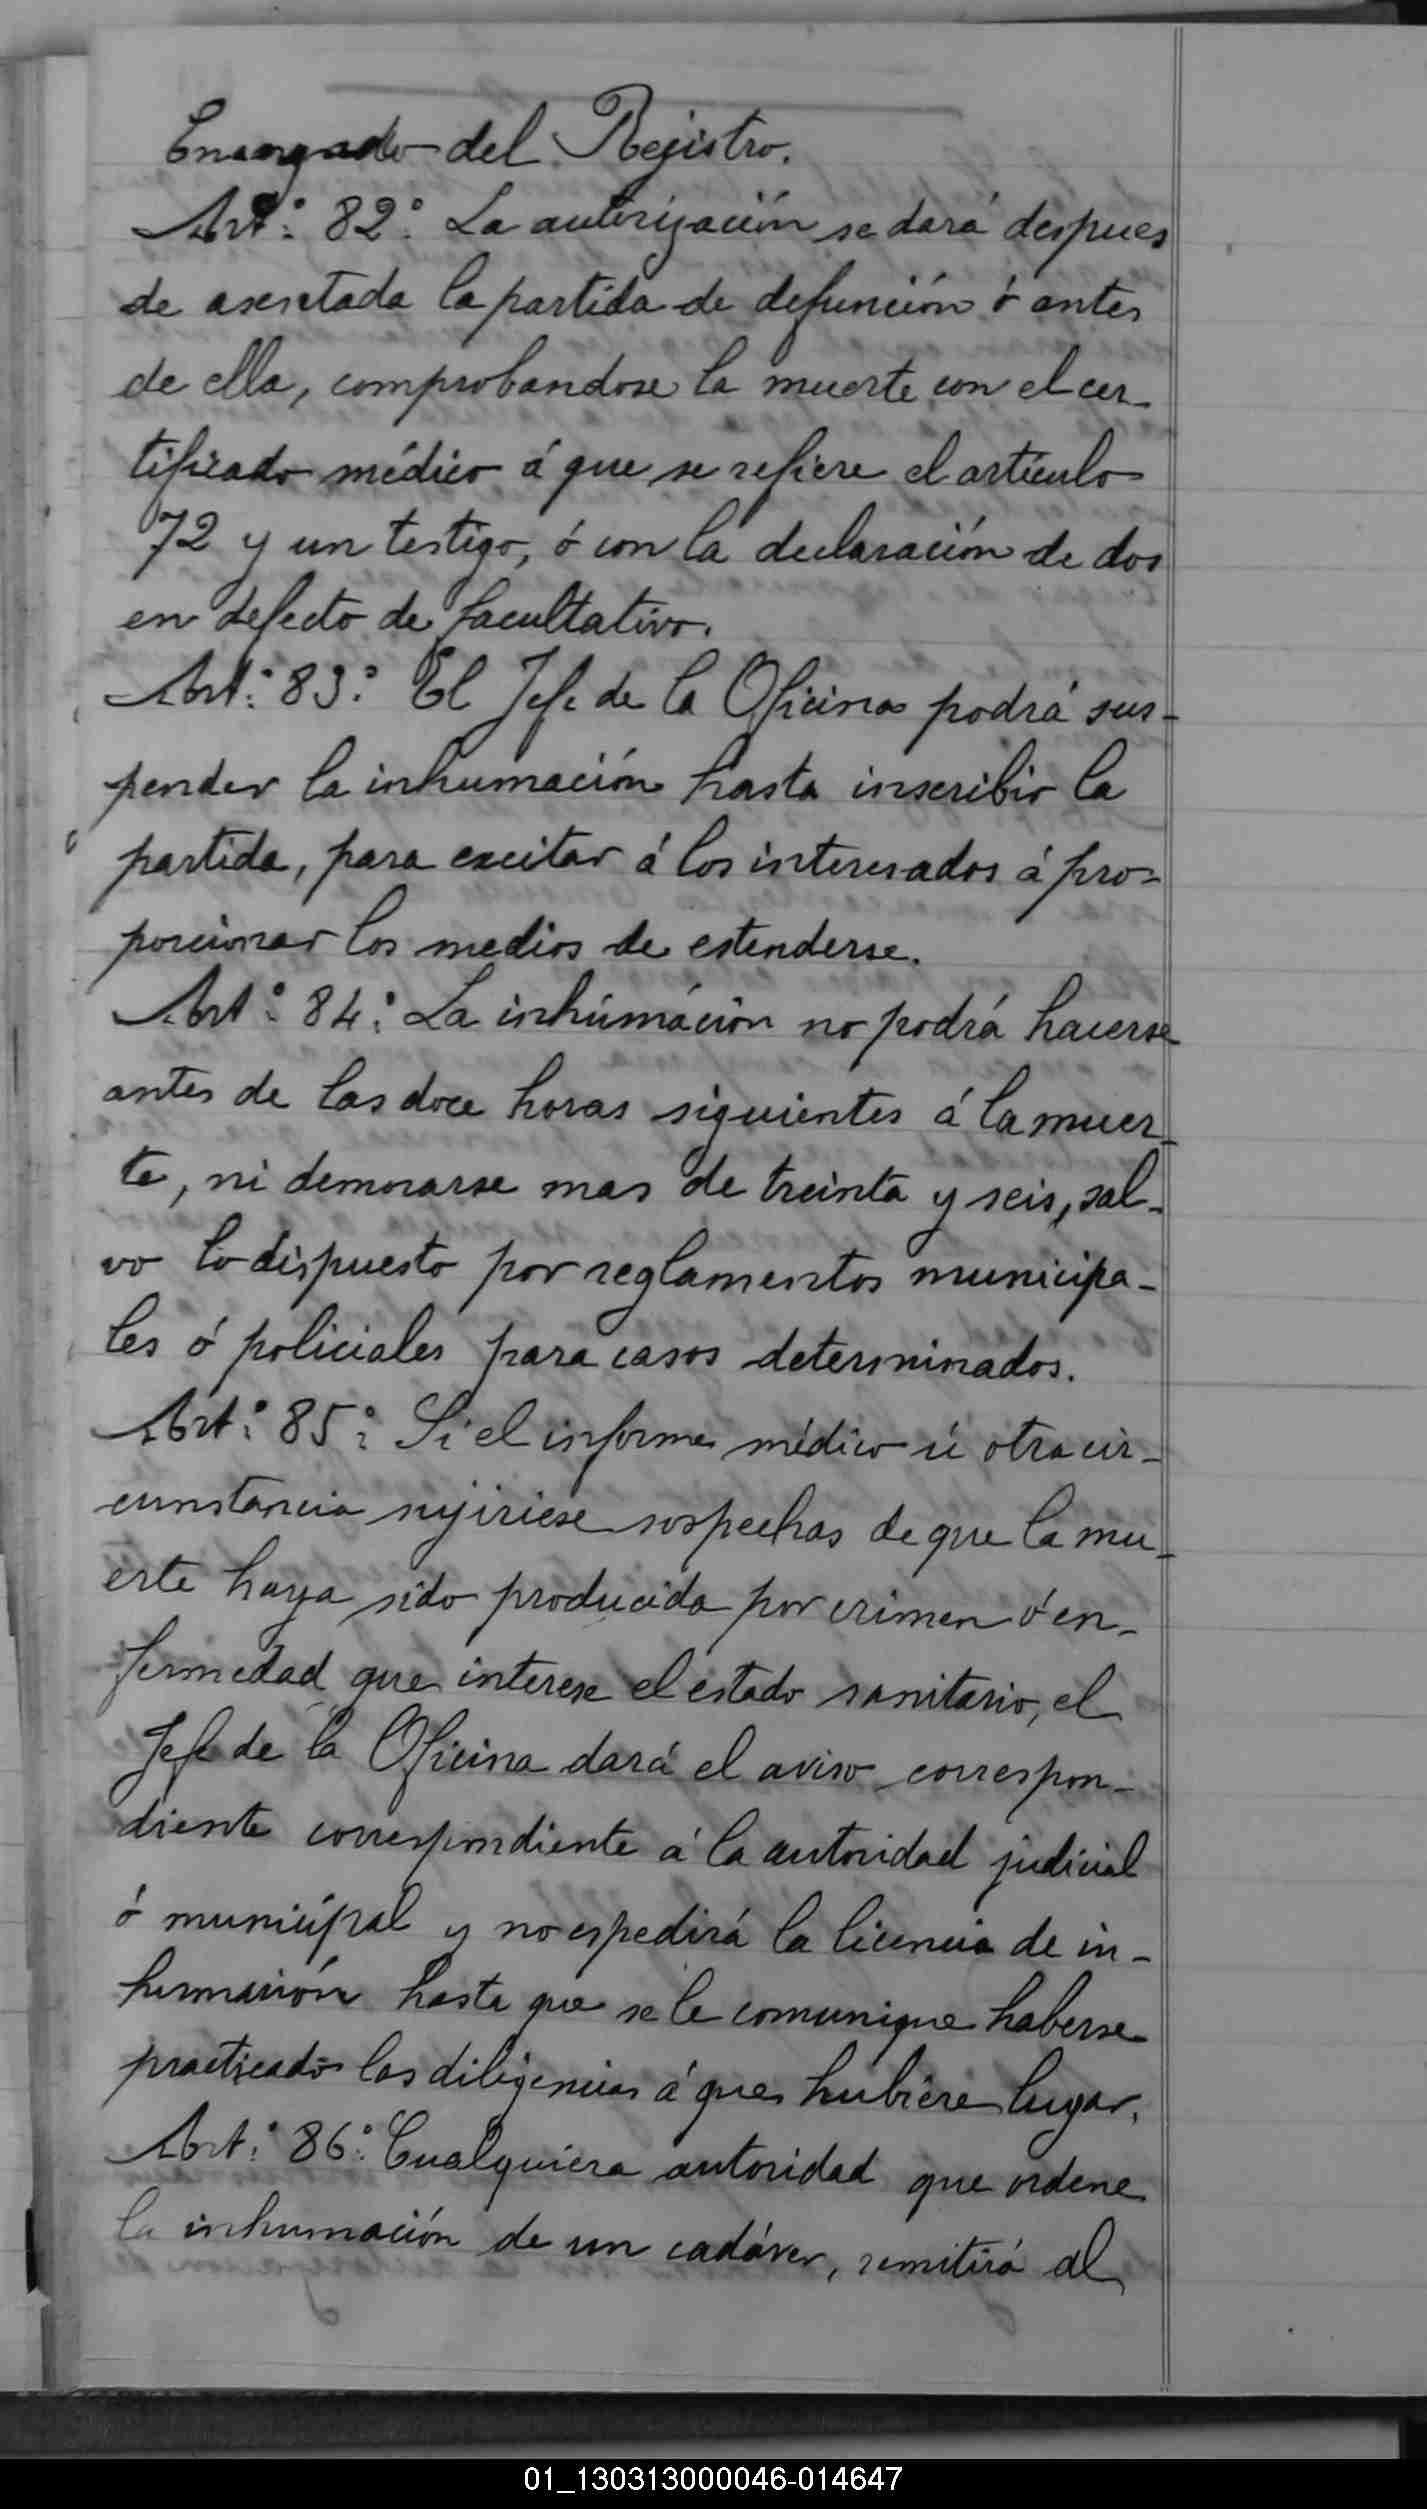 Encargado del Rejistro.
Art.° 82.° La autorización se dará despues
de asentada la partida de defunción ó antes
de ella, comprobandose la muerte con el cer-
tificado médico á que se refiere el artículo
72 y un testigo, ó con la declaración de dos
en defecto de facultativo.
Art.° 83.° El Jefe de la Oficina podrá sus-
pender la inhumación hasta inscribir la
partida, para excitar á los interesados á pro-
porcionar los medios de estenderse.
Art.° 84.° La inhúmación no podrá hacerse
antes de las doce horas siguientes á la muer-
te, ni demorarse mas de treinta y seis, sal-
vo lo dispuesto por reglamentos municipa-
les ó policiales para casos determinados.
Art.° 85.° Si el informe médico ú otra cir-
cunstancia sujiriese sospechas de que la mu-
erte haya sido producida por crimen ó en-
fermedad que interese el estado sanitario, el
Jefe de la Oficina dará el aviso correspon-
diente correspondiente á la autoridad judicial
ó municipal y no espedirá la licencia de in-
humación hasta que se le comunique haberse
practicado las diligencias á que hubiere lugar.
Art.° 86.° Cualquiera autoridad que ordene
la inhumación de un cadáver, remitirá al
01_130313000046-014647